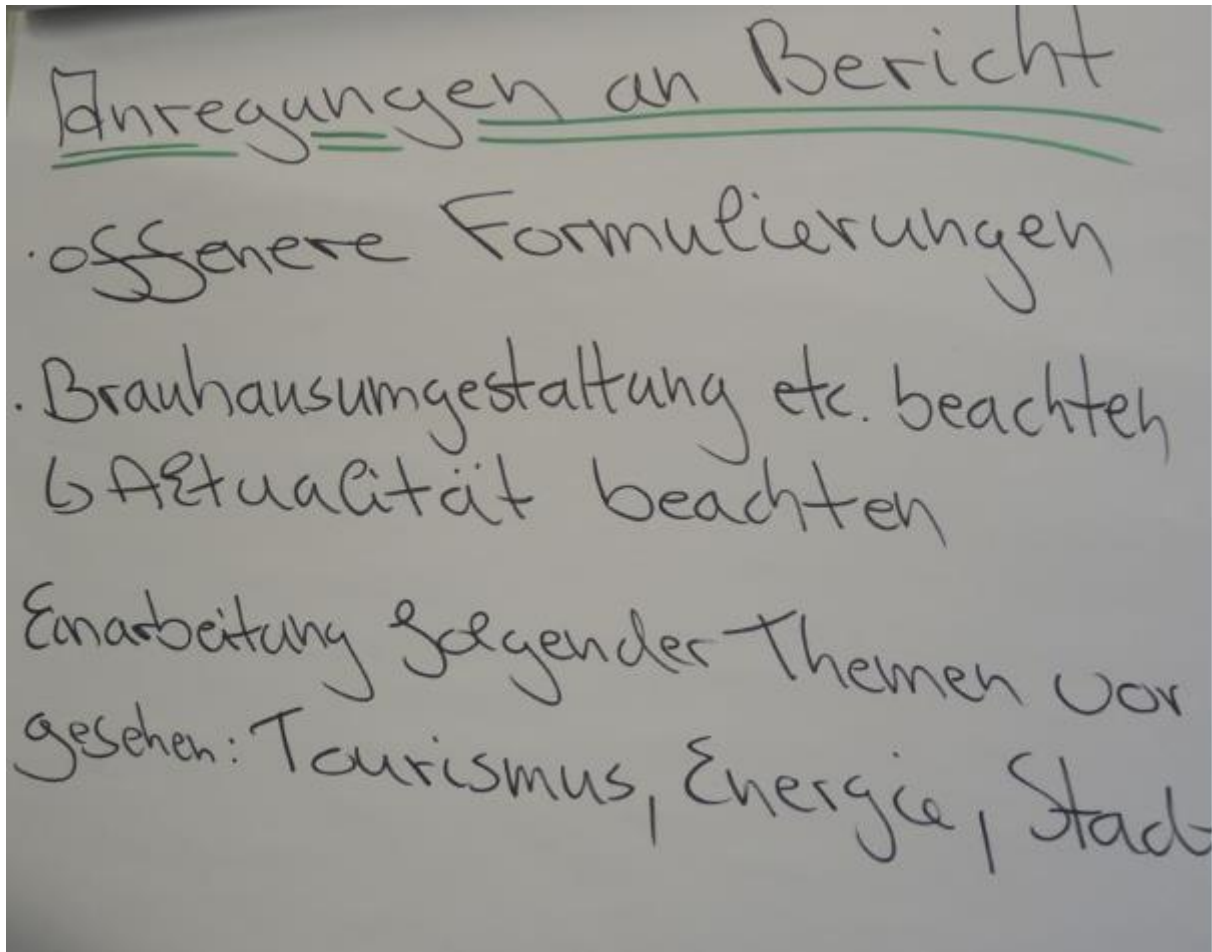 Anregungen an Bericht
· offenere Formulierungen
· Brauhausumgestaltung etc. beachten
↳ Aktualität beachten
Einarbeitung folgender Themen vor
gesehen: Tourismus, Energie, Stadt